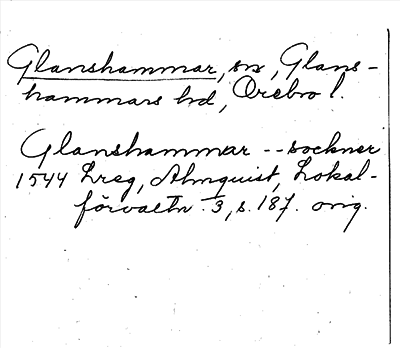 Glanshammar, sn, Glans-
hammars hd, Örebro l.
Glanshammar -- sockner
1544 Lreg, Almquist, Lokal-
förvaltn. 3, s. 187. orig.